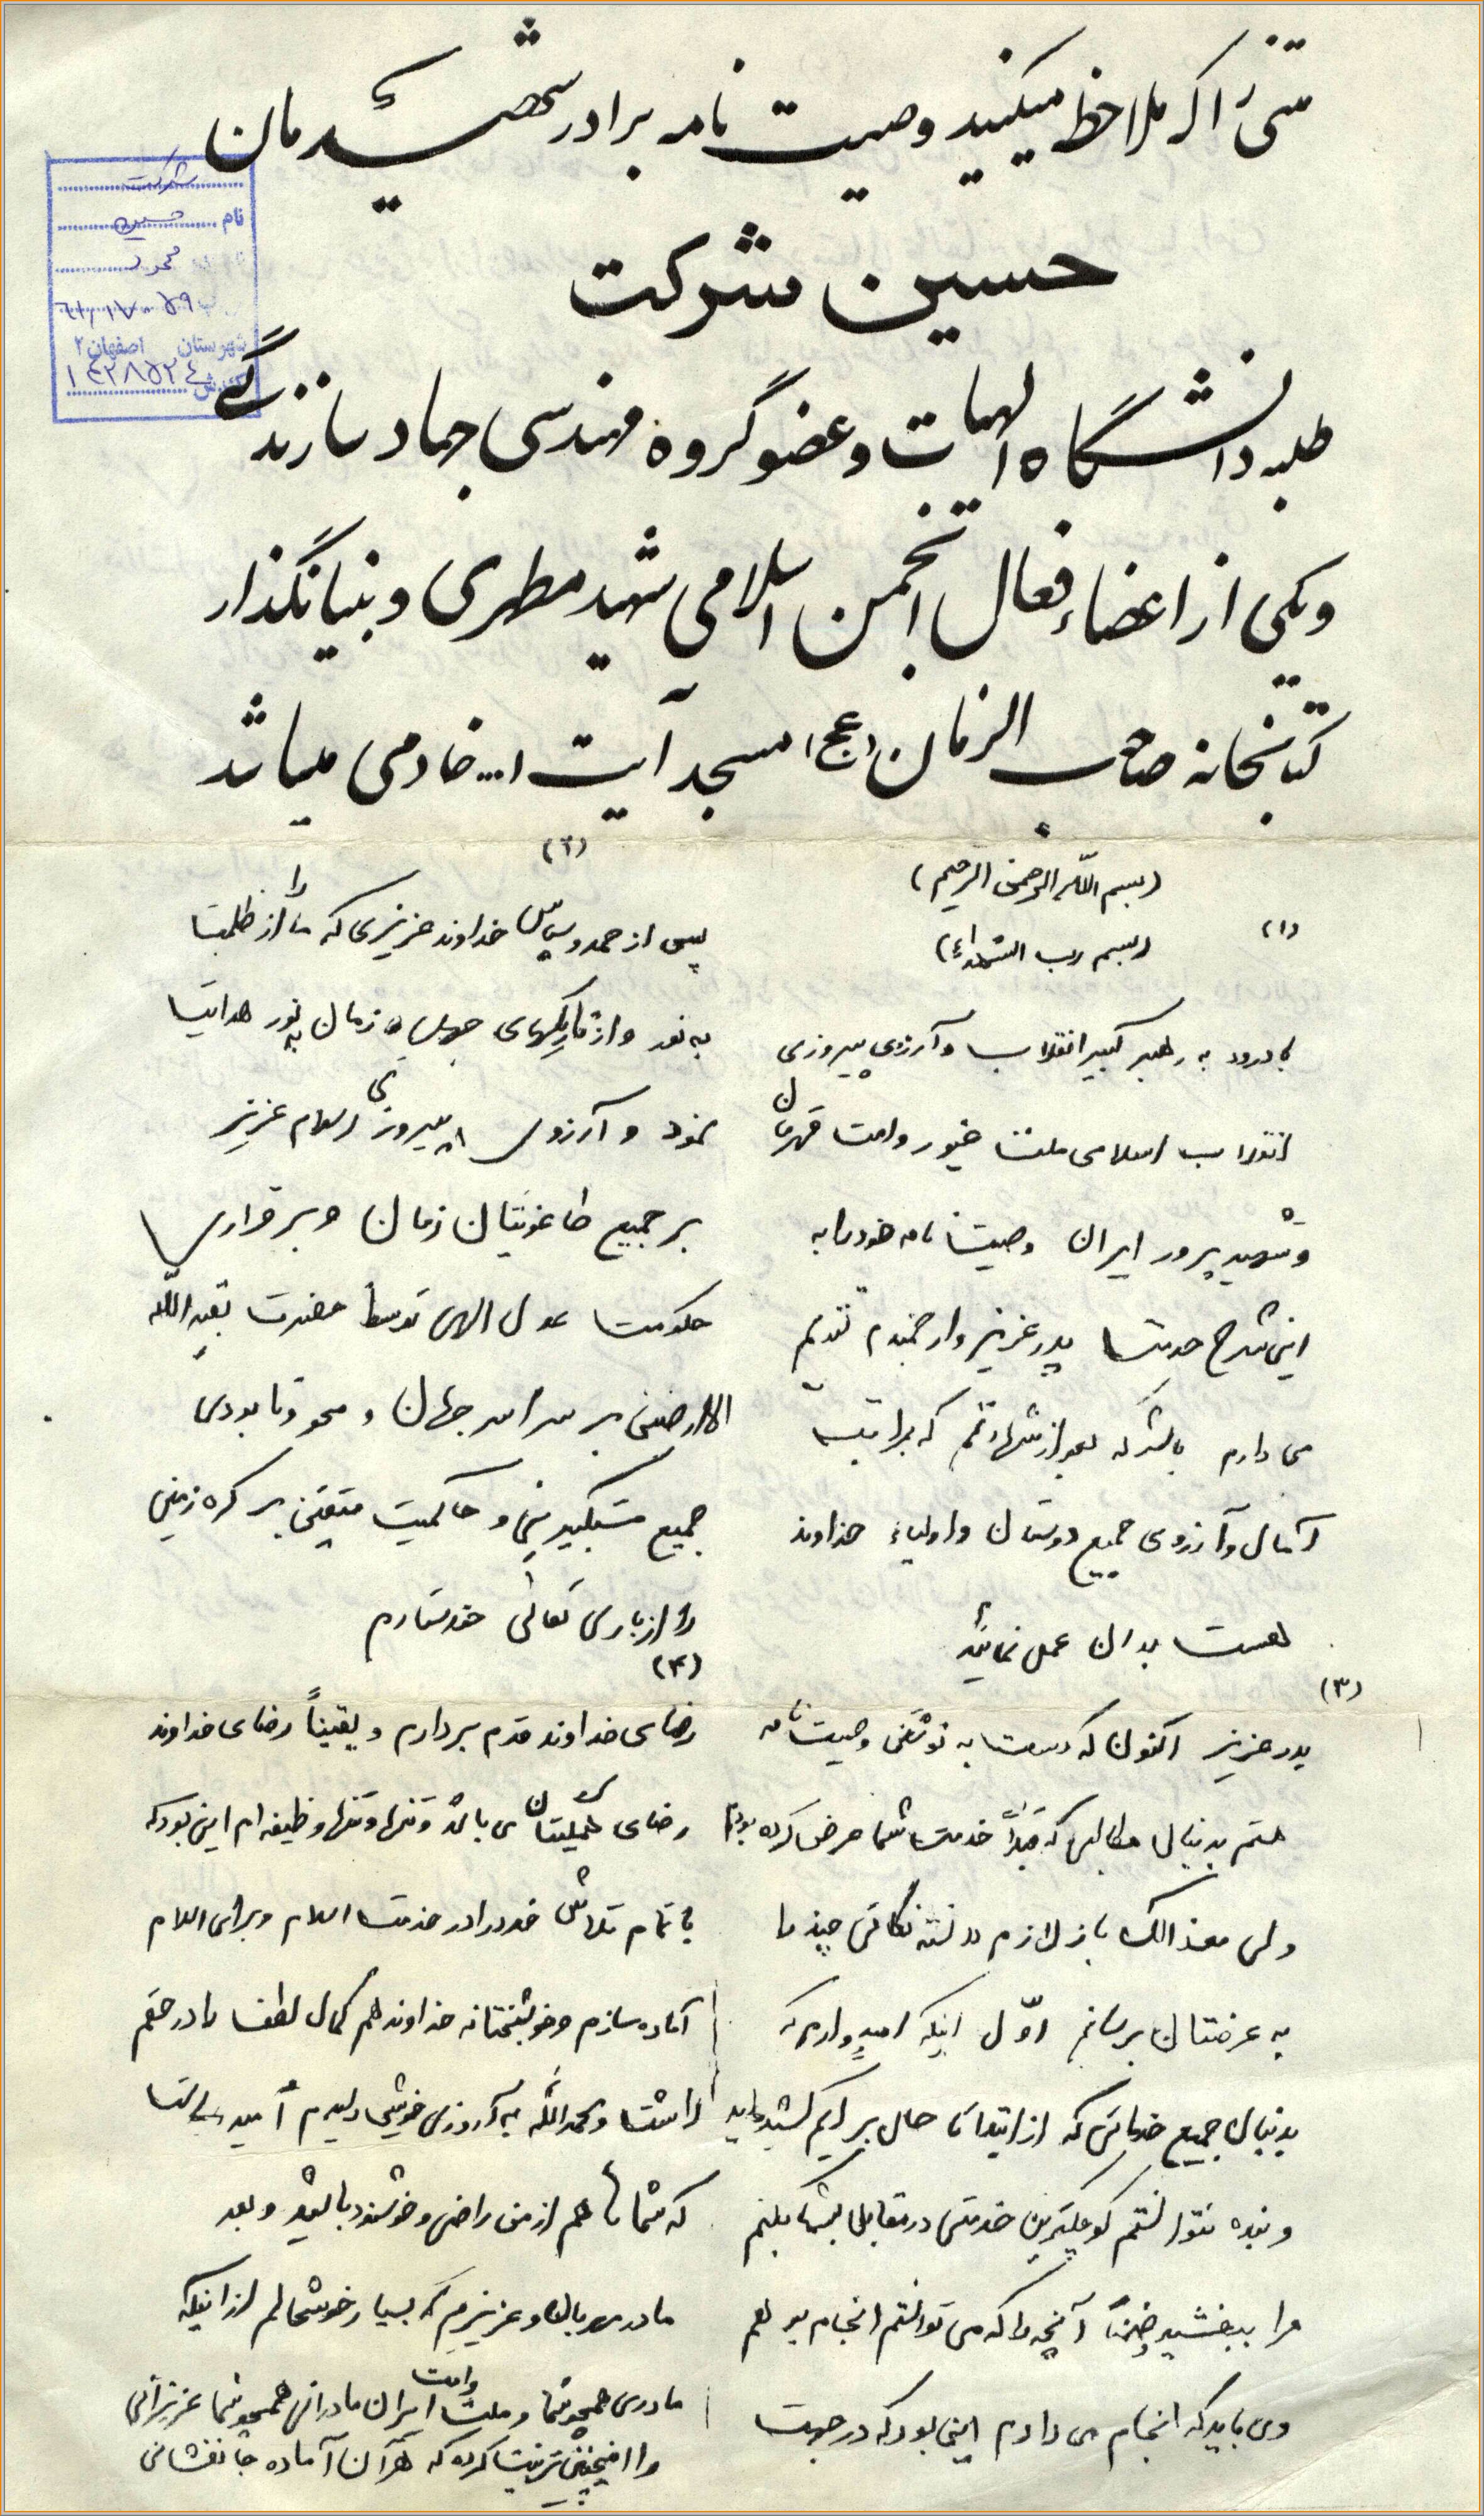 متنی را که ملاحظه میکنید وصیت نامه برادر شهیدمان
حسین شرکت
طلبه دانشگاه الهیات و عضو گروه مهندسی جهاد سازندگی
و یکی از اعضاء فعال انجمن اسلامی شهید مطهری و بنیانگذار
کتابخانه صاحب الزمان (عج) مسجد آیت ا... خادمی میباشد
شرکت
نام حسین
محمود
شهرستان اصفهان ۲
۱۴۲۸۵۲۴
(۱)
(بسم اللّه الرحمن الرحیم)
(بسم رب الشهداء)
با درود به رهبر کبیر انقلاب و آرزوی پیروزی
انقلاب اسلامی ملت غیور و امت قهرمان
و شهید پرور ایران وصیت نامه خود را به
این شرح خدمت پدر عزیز و ارجمندم تقدیم
می دارم باشد که بعد از شهادتم که برایت
آمال و آرزوی جمیع دوستان و اولیاء خداوند
هست بدان عمل نمائید
(۲)
پس از حمد و سپاس خداوند عزیزی که ما را از ظلمت
به نور و از تاریکیهای جهل زمان به نور هدایت
نمود و آرزوی پیروزی اسلام عزیز
بر جمیع طاغوتیان زمان و برقراری
حکومت عدل الهی توسط حضرت بقیه اللّه
الارضین بر سراسر جهان و محو و نابودی
جمیع مستکبرین و حاکمیت متقین بر کره زمین
را از باری تعالی خواستارم
(۳)
پدر عزیز اکنون که دست به نوشتن وصیت نامه
هستم بدنبال مطالبی که قبلاً خدمت شما عرض کرده بودم
ولی معذالک باز لازم دانسته نکاتی چند را
به عرضتان برسانم اوّل اینکه امیدوارم که
بدنبال جمیع خدماتی که از ابتدا تا حال برایم کشیده‌اید
و بنده نتوانستم کوچکترین خدمتی در مقابل بشما بکنم
مرا ببخشید ضمناً آنچه را که می توانستم انجام بدهم
و می باید که انجام می دادم این بود که در جهت
(۴)
رضای خداوند قدم بردارم و یقیناً رضای خداوند
رضای همگیتان می باشد و تنها و تنها وظیفه ام این بود که
با تمام تلاش خود را در خدمت اسلام و برای اسلام
آماده سازم و خوشبختانه خداوند هم کمال لطف را در حقم
داشت و بحمدالله به آرزوی خویش رسیدم امید است
که شماها هم از من راضی و خوشنود باشید و بعد
مادر و عزیزم که بسیار خوشحالم از اینکه
مادری همچو شما و ملت و امت ایران مادرانی همچو شما عزیزانی
را اینچنین تربیت کرده که هر آن آماده جانفشانی